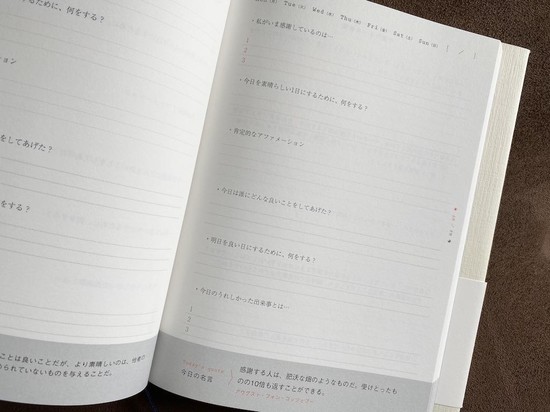 ために、何をする？
ション
をしてあげた？
をする？
ことは良いことだが、より素晴しいのは、
られていないものを与えることだ。
Tue (火) Wed (水) Thu (木) Fri (金) Sat (土) Sun (日)
・私がいま感謝しているのは…
1
2
3
・今日を素晴らしい1日にするために、何をする？
・肯定的なアファメーション
・今日は誰にどんな良いことをしてあげた？
・明日を良い日にするために、何をする？
・今日のうれしかった出来事とは…
1
2
3
Today's quote
今日の名言
感謝する人は、肥沃な畑のようなものだ。受けとったも
のの10倍も返すことができる。